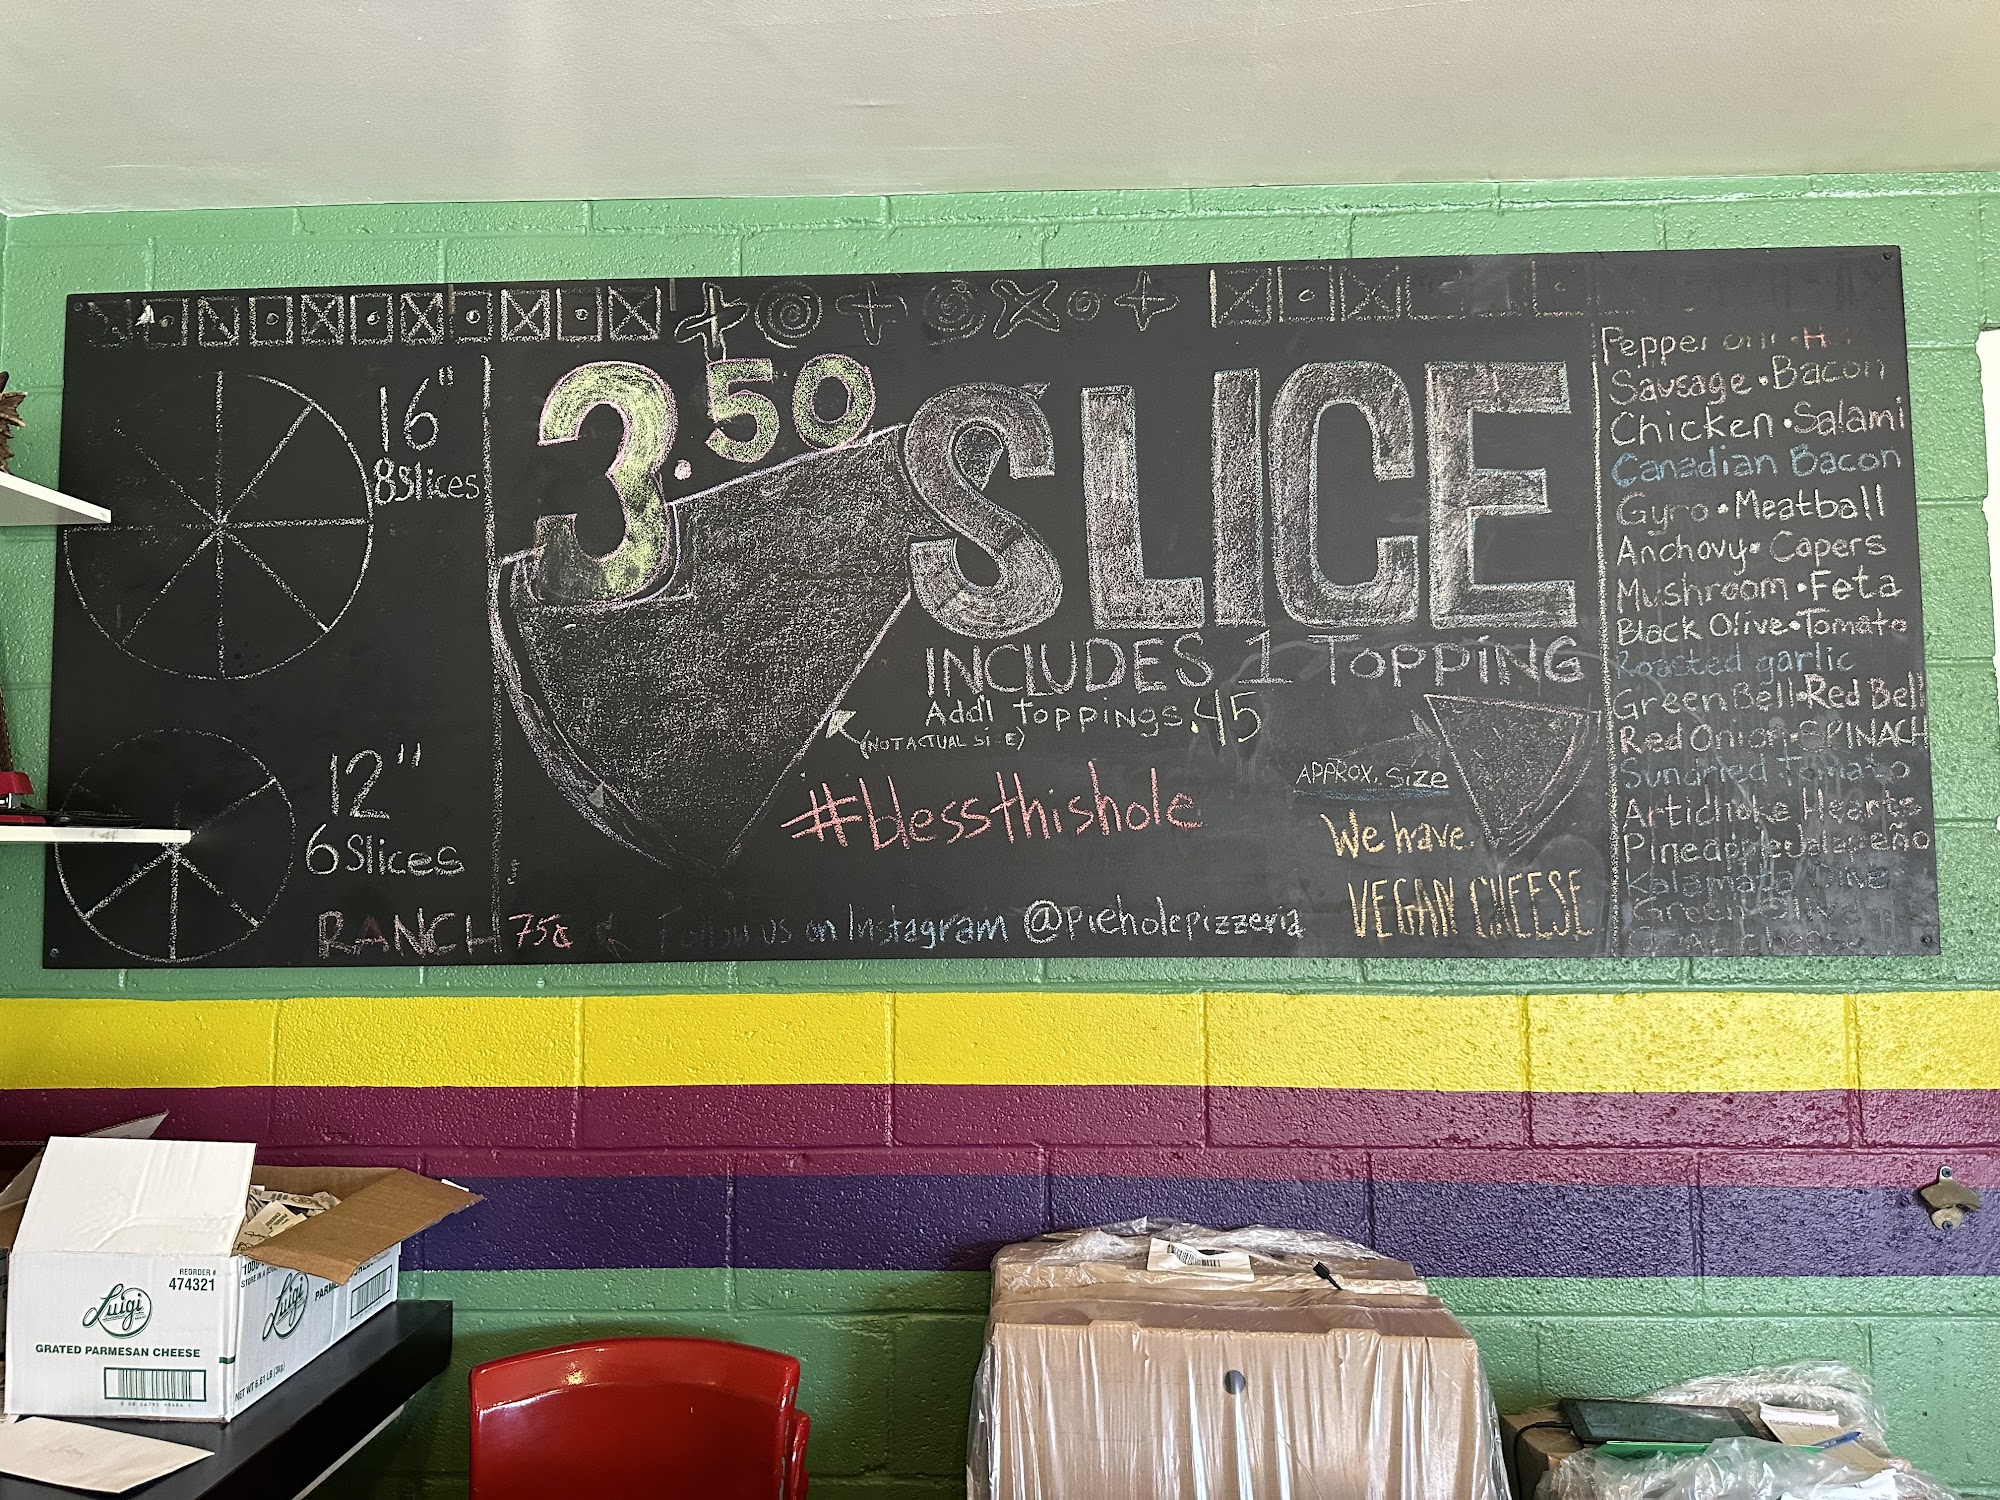 16"
8 Slices
12"
6 Slices
RANCH 75¢
3.50 SLICE
INCLUDES 1 TOPPING
Add'l Toppings .45
(NOT ACTUAL SIZE)
#blessthishole
APPROX. SIZE
We have
VEGAN CHEESE
Follow us on Instagram @pieholepizzeria
Pepperoni
Sausage • Bacon
Chicken • Salami
Canadian Bacon
Gyro • Meatball
Anchovy • Capers
Mushroom • Feta
Black Olive • Tomato
Roasted garlic
Green Bell • Red Bell
Red Onion • SPINACH
Sundried Tomato
Artichoke Hearts
Pineapple • Jalapeño
Kalamata Olive
Green Olive
Goat Cheese
REORDER #
474321
Luigi
GRATED PARMESAN CHEESE
Luigi
NET WT 6.61 LB (3kg)